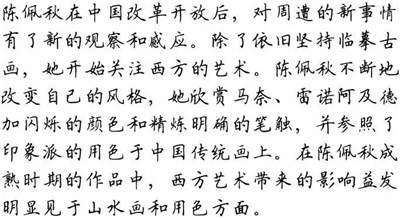 陈佩秋在中国改革开放后，对周遭的新事情
有了新的观察和感应。除了依旧坚持临摹古
画，她开始关注西方的艺术。陈佩秋不断地
改变自己的风格，她欣赏马奈、雷诺阿及德
加闪烁的颜色和精炼明确的笔触，并参照了
印象派的用色于中国传统画上。在陈佩秋成
熟时期的作品中，西方艺术带来的影响益发
明显见于山水画和用色方面。